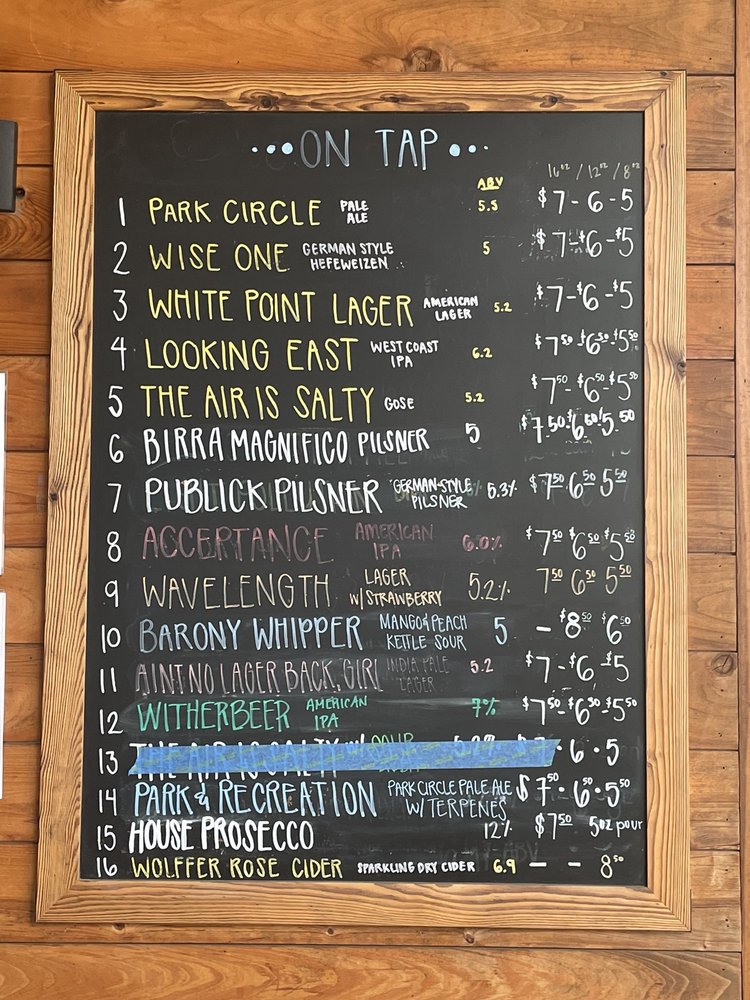 ON TAP
16oz / 12oz / 8oz
ABV
1 PARK CIRCLE PALE ALE 5.5 $7-6-5
2 WISE ONE GERMAN STYLE HEFEWEIZEN 5 $7-$6-$5
3 WHITE POINT LAGER AMERICAN LAGER 5.2 $7-$6-$5
4 LOOKING EAST WEST COAST IPA 6.2 $7.50-$6.50-$5.50
5 THE AIR IS SALTY GOSE 5.2 $7.50-$6.50-$5.50
6 BIRRA MAGNIFICO PILSNER 5 $7.50-$6.50/5.50
7 PUBLICK PILSNER GERMAN-STYLE PILSNER 5.3% $7.50-6.50-5.50
8 ACCERTANCE AMERICAN IPA 6.0% $7.50-$6.50-$5.50
9 WAVELENGTH LAGER W/STRAWBERRY 5.2% 7.50 6.50 5.50
10 BARONY WHIPPER MANGO & PEACH KETTLE SOUR 5 - $8.50 $6.50
11 AINT NO LAGER BACK, GIRL INDIA PALE LAGER 5.2 $7-$6-$5
12 WITHERBEER AMERICAN IPA 7% $7.50-$6.50-$5.50
13 THE AIR IS SALTY 6.5
14 PARK & RECREATION PARK CIRCLE PALE ALE W/TERPENES $7.50.6.50.5.50
15 HOUSE PROSECCO 12% $7.50 5oz pour
16 WOLFFER ROSE CIDER SPARKLING DRY CIDER 6.9 - - 8.50